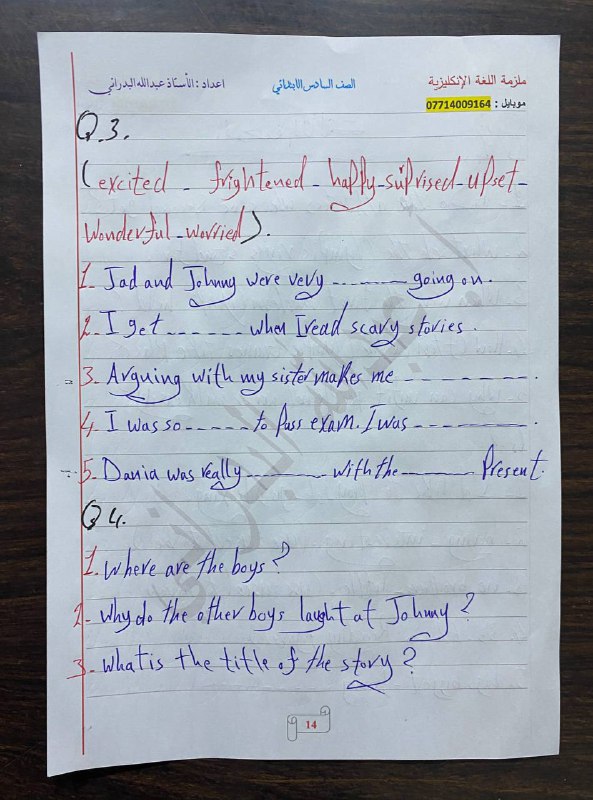 ملزمة اللغة الإنكليزية الصف السادس الابتدائي اعداد : الأستاذ عبدالله البدراني
موبايل : 07714009164
Q.3.
(excited - frightened - happy - suprised - upset -
wonderful - worried).
1- Jad and Johnny were very ------- going on.
2- I get ------ when I read scary stories.
3- Arguing with my sister makes me ----------.
4- I was so ----- to Pass exam. I was --------.
5- Dania was really ------- with the ------ Present.
Q4.
1. Where are the boys?
2- Why do the other boys laught at Johnny?
3- What is the title of the story?
14